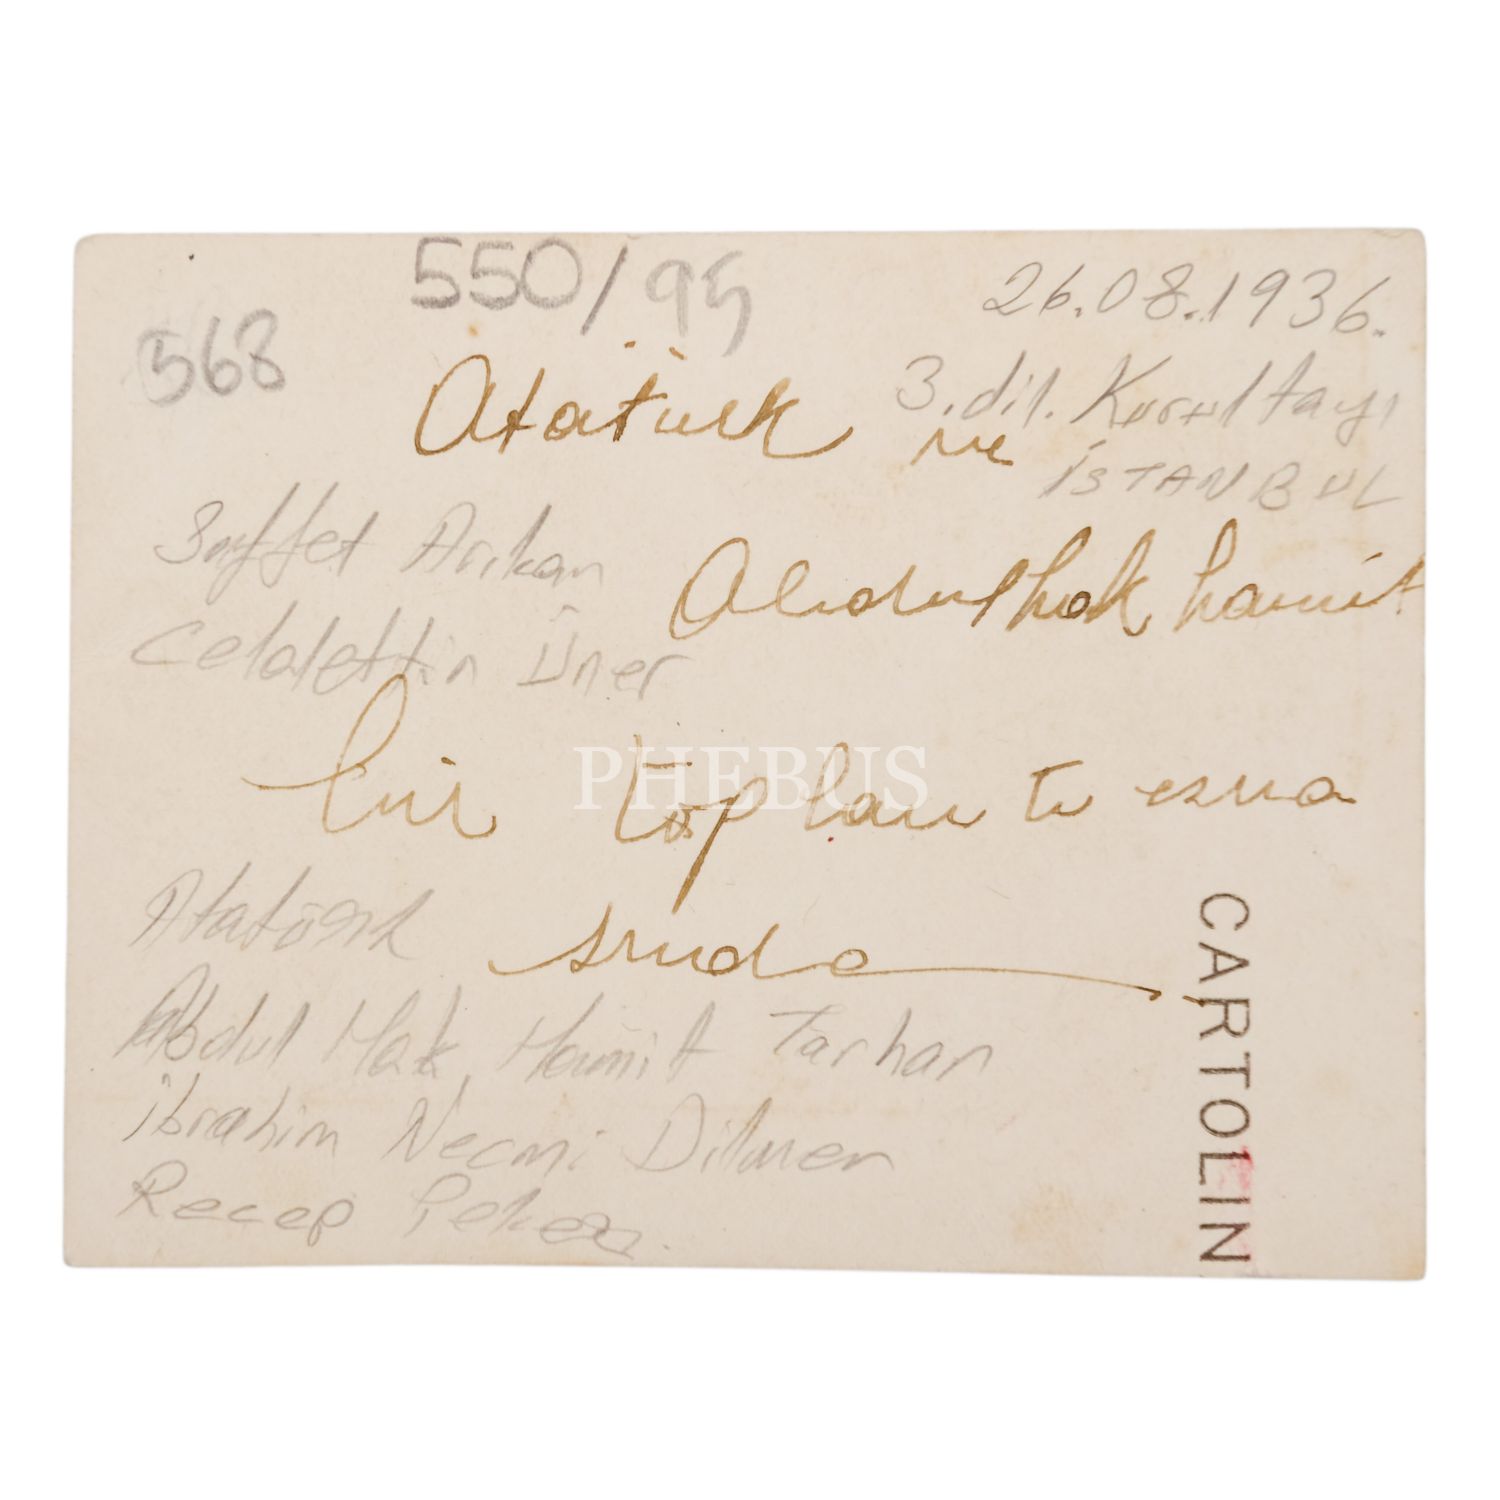 550/95
26.08.1936.
568
3.dil. Kurultayı
Atatürk ve
İSTANBUL
Saffet Arıkan
Abdulhak hamit
Celalettin Üner
bir toplantı esna
PHEBUS
Atatürk
sında
Abdul Hak Hamit Tarhan
İbrahim Necmi Dilmen
Recep Peker.
CARTOLIN